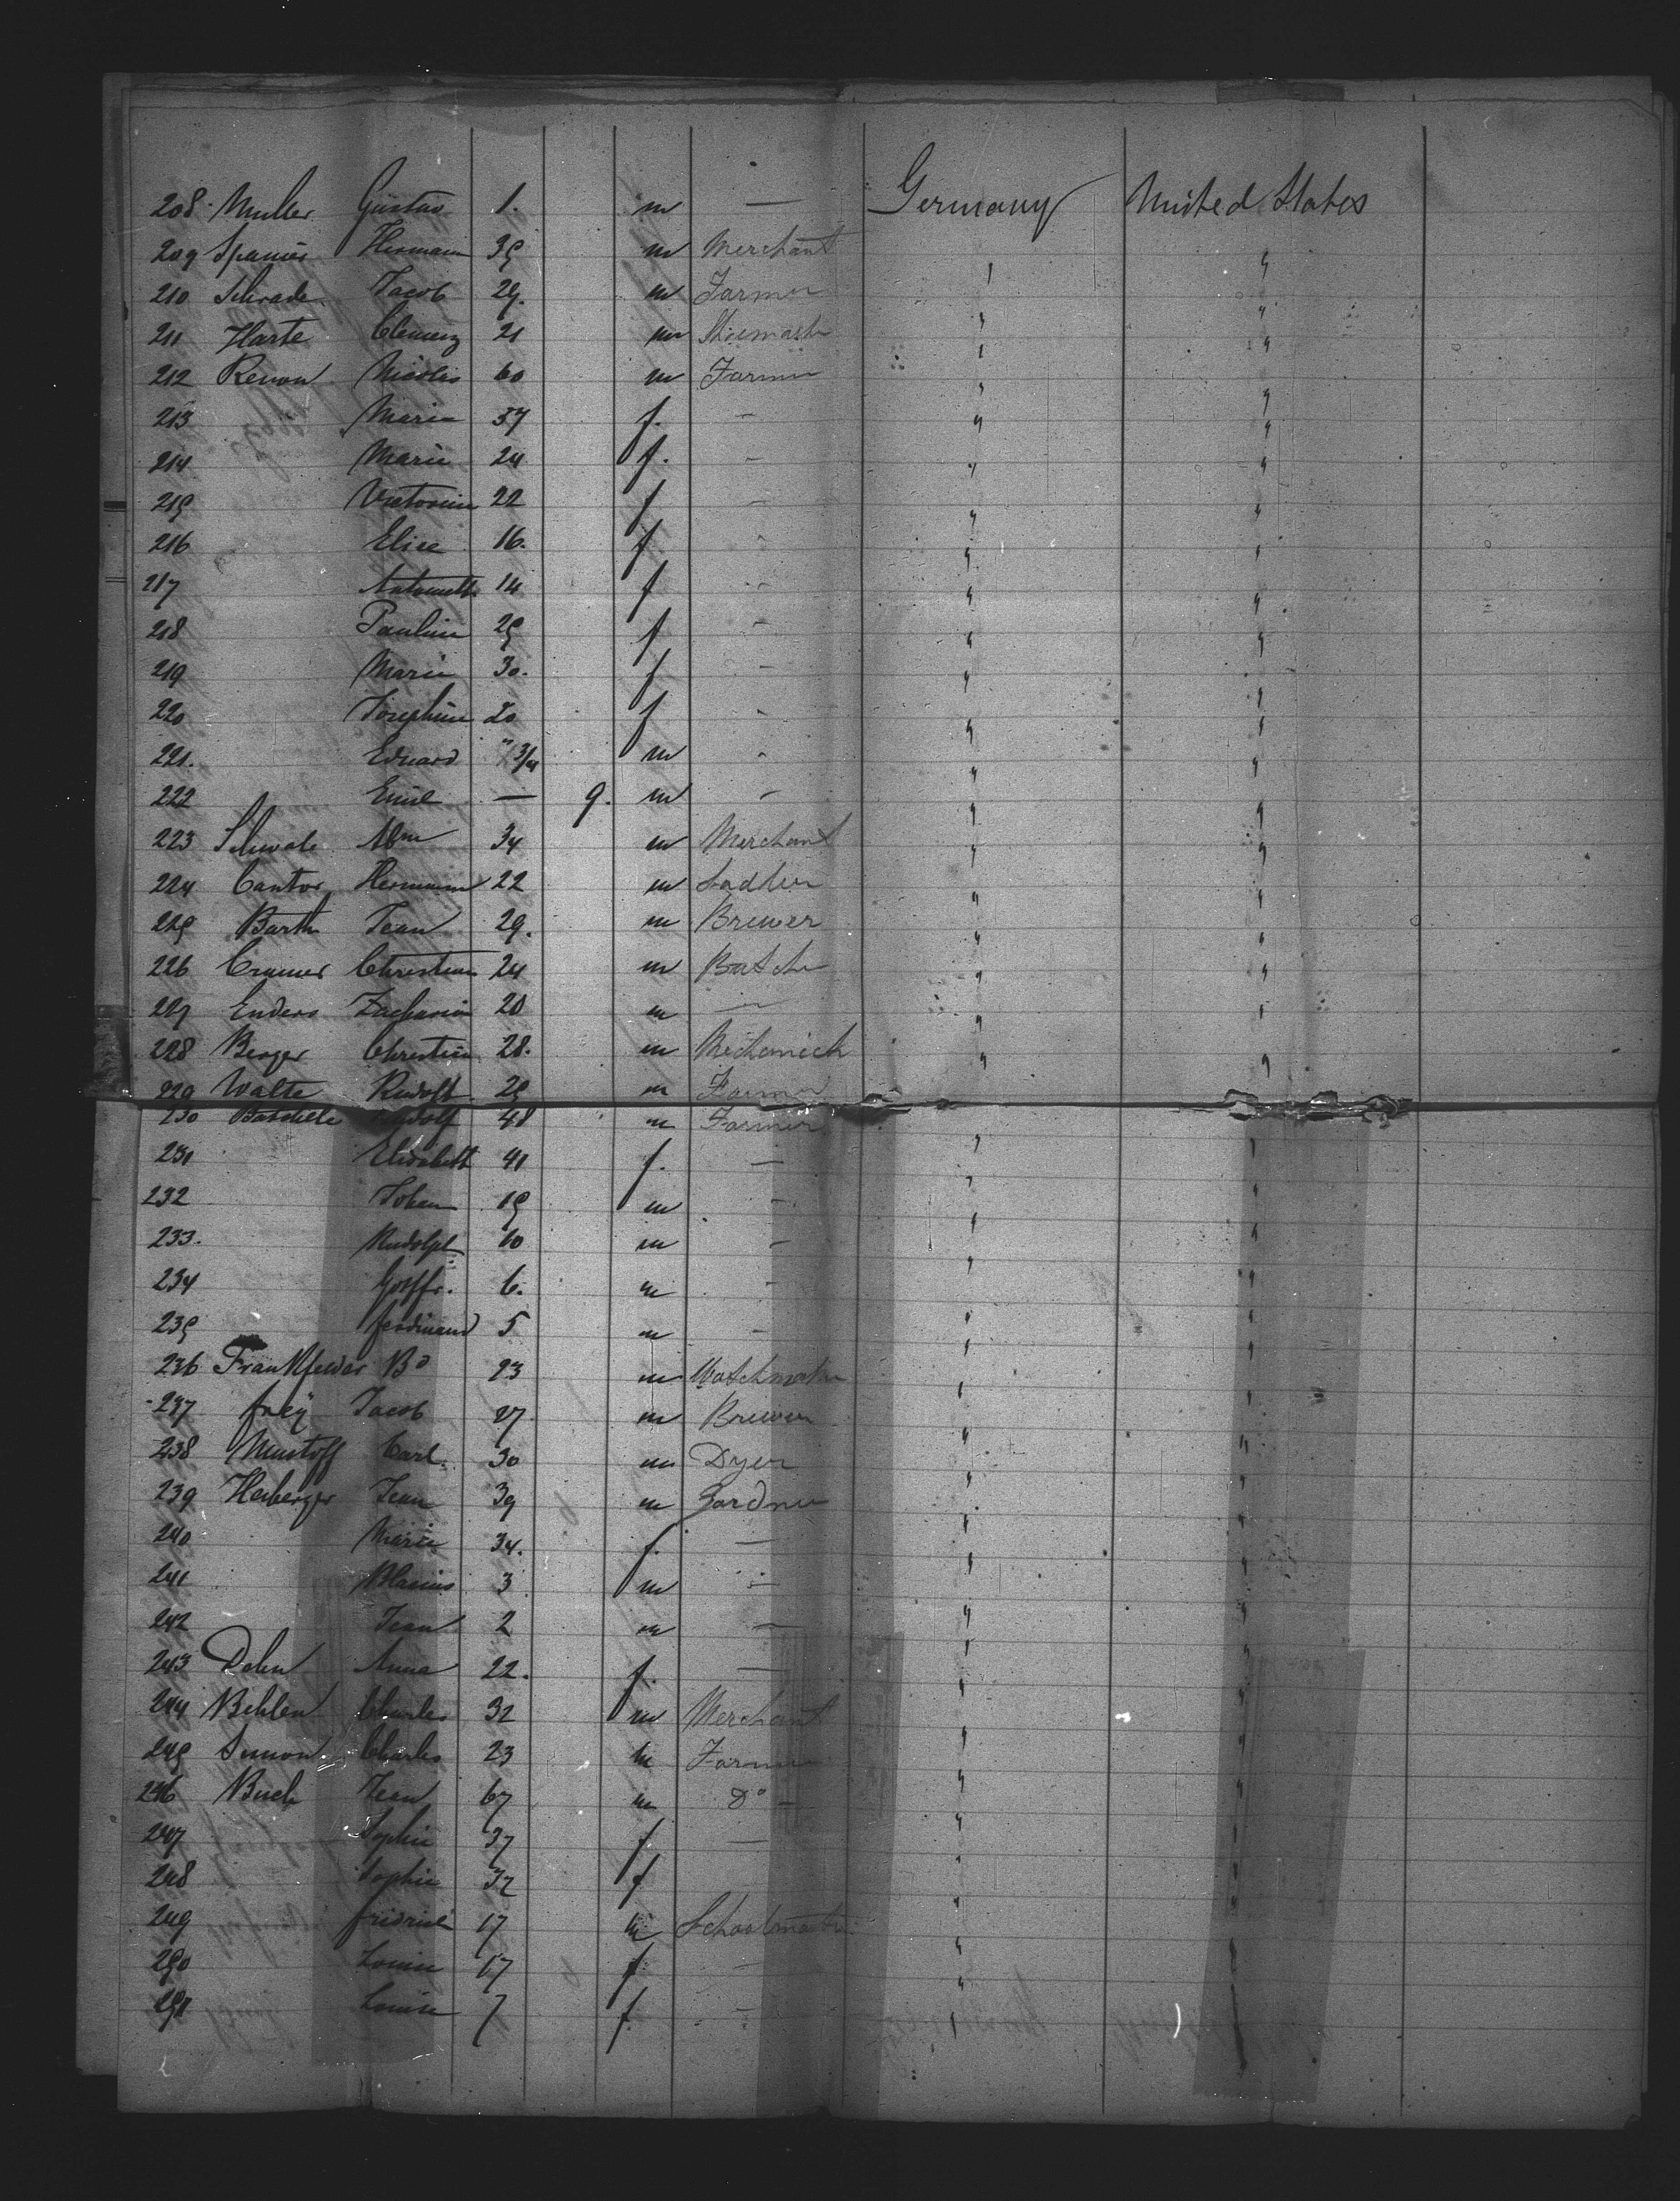 208 Muller Gustav 1. m — Germany United States
209 Spanier Hermann 35 m Merchant " "
210 Schrade Jacob 29. m Farmer " "
211 Harte Clemenz 21 m Shoemaker " "
212 Renon Nicolas 60 m Farmer " "
213 Maria 37 f. — " "
214 Marie 24 f. — " "
215 Victorine 22 f — " "
216 Elise 16. f - " "
217 Antoinette 14 f - " "
218 Pauline 25 f - " "
219 Marie 30. f - " "
220 Josephine 20 f - " "
221. Eduard " 3/4 m - " "
222 Emil — 9. m - " "
223 Schwab Abm 34 m Merchant " "
224 Cantor Hermann 22 m Sadler " "
225 Barth Jean 29. m Brewer " "
226 Cramer Christian 24 m Butcher " "
227 Enders Zacharia 20 m — " "
228 Berger Christian 28. m Mechanick " "
229 Walte Rudolf 25 m Farmer
230 Rudolf 48 m Farmer " "
231 Elisabeth 41 f. — " "
232 Johan 15 m - " "
233. Rudolph 10 m - " "
234 Gottfr. 6. m - " "
235 ferdinand 5 m - " "
236 Frankfelder Bd 23 m Watchmaker " "
237 frey Jacob 27 m Brewer " "
238 Mustoff Carl. 30 m Dyer " "
239 Herberger Jean 39 m Gardner " "
240 Marie 34. f. — " "
241 Blasius 3 m - " "
242 Jean 2 m — " "
243 Dolen Anna 22. f. — " "
244 Behlen Charles 32 m Merchant " "
245 Simon Charles 23 m Farmer " "
246 Buch Jean 67 m Do - " "
247 Sophie 37 f. — " "
248 Sophie 32 f " "
249 fridrich 17 m Schoolmaster " "
250 Louise 17 f. - " "
251 Louise 7 f. - " "